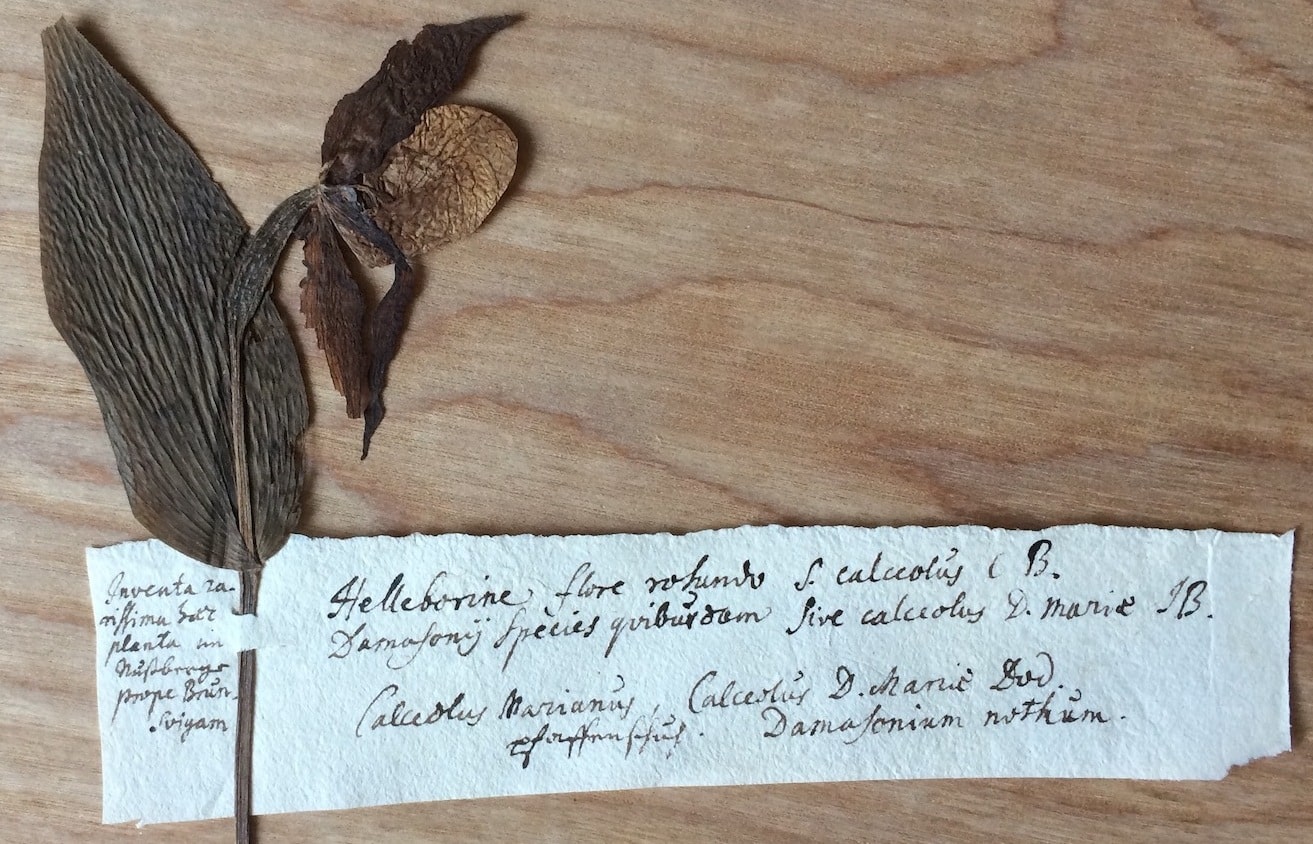 Inventa ra-
rissima haec
planta im
Nußberge
prope Brun-
svigam
Helleborine flore rotundo s. calceolus C B.
Damasonij species quibusdam sive calceolus D. Mariæ IB.
Calceolus Marianus, Calceolus D. Mariæ Dod.
pfaffenschuh. Damasonium nothum.